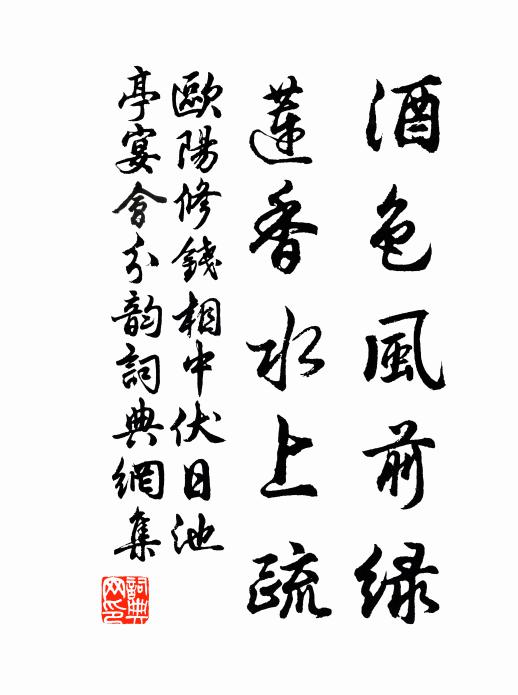 酒色風前緑
蓮香水上疏
歐陽修錢相中伏日池
亭宴會分韵詞典網集
詞典網印